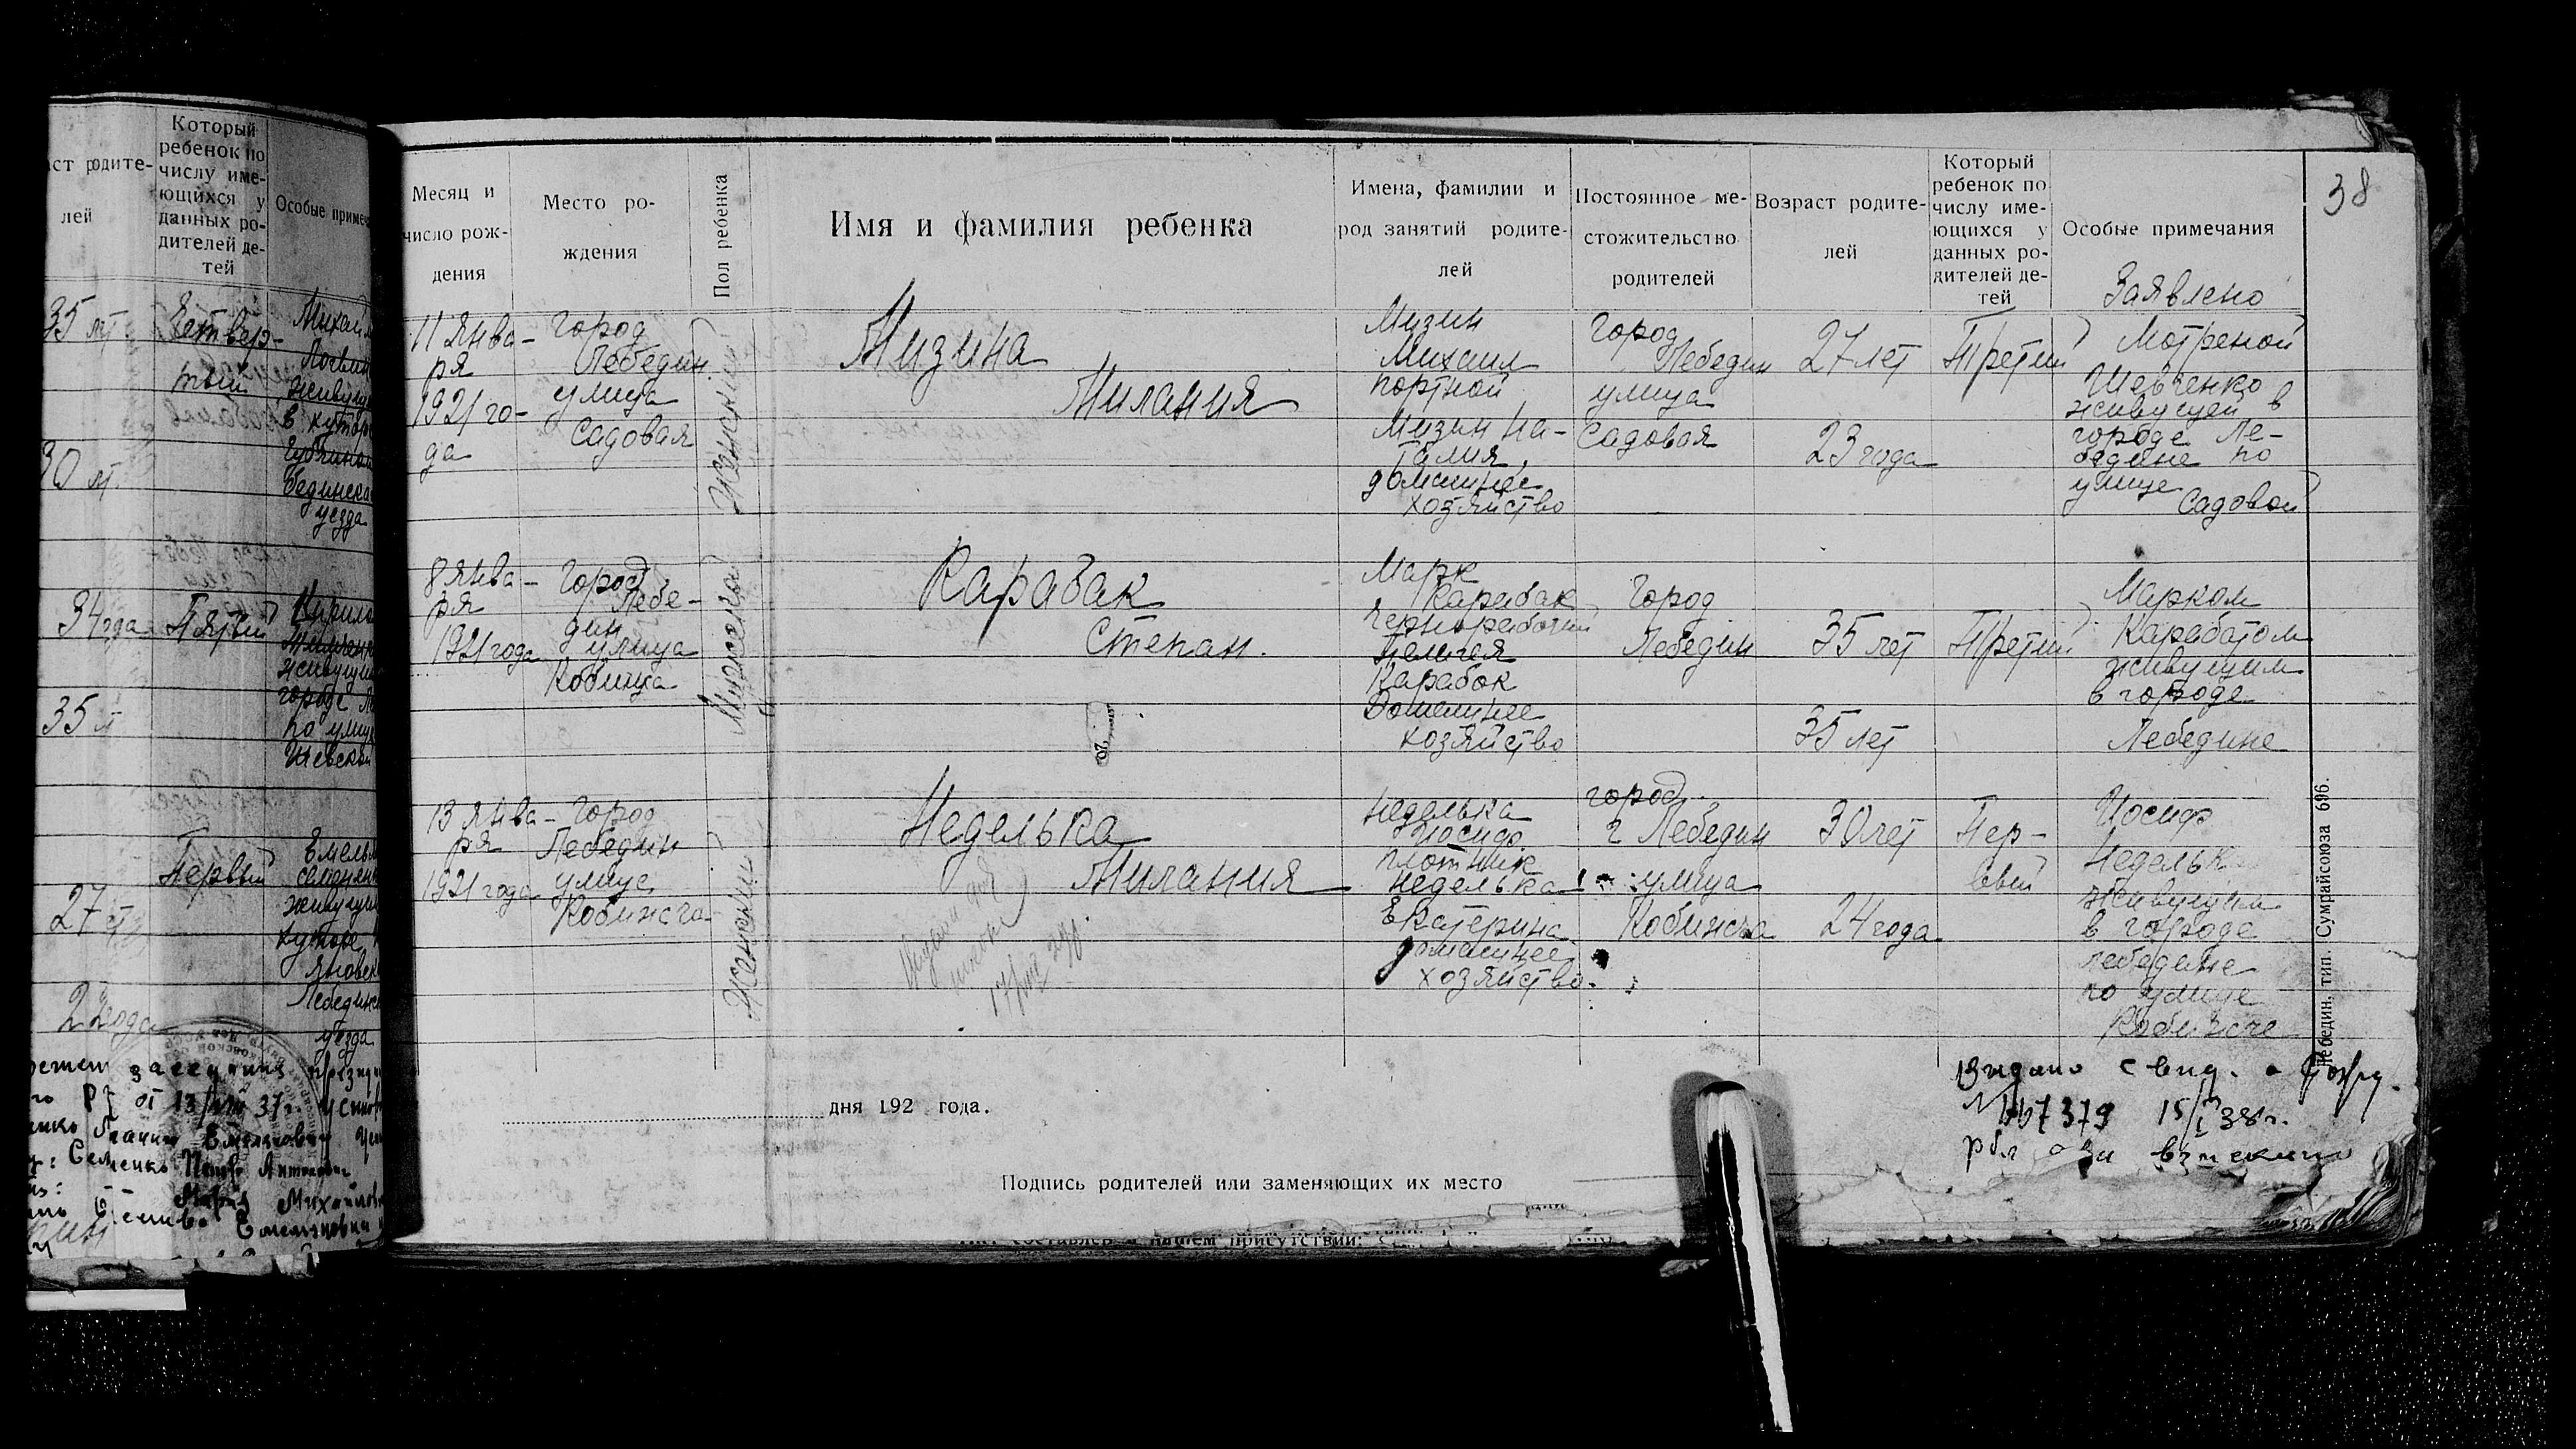 аст родите-
лей
Который
ребенок по
числу име-
ющихся у
данных ро-
дителей де-
тей
Особые примеч
35 лт.
Четвер-
тый
Михаил
живущ
в хутор
30 лт.
бединска
уезда
34 года
Пятый
Кирило
живущи
городе Л
по улиц
35 л
Первый
Емельян
живущи
хуторе
27 лт
22 года
Лебединс
уезда
Месяц и
число рож-
дения
Место ро-
ждения
Пол ребенка
Имя и фамилия ребенка
Имена, фамилии и
род занятий родите-
лей
Постоянное ме-
стожительство
родителей
Возраст родите-
лей
Который
ребенок по
числу име-
ющихся у
данных ро-
дителей де-
тей
Особые примечания
38
11 янва-
ря
1921 го-
да
город
Лебедин
улица
Садовая
Женский
Мизина
Милания
Мизин
Михаил
портной
Мизин На-
талия,
домашнее
хозяйство
город
Лебедин
улица
Садовая
27 лет
23 года
Третий
Заявлено
Мотреной
Шевченко
живущей в
городе Ле-
бедине по
улице
Садовой
8 янва-
ря
1921 года
город
Лебе-
дин
улица
Кобижча
Мужской
Карабак
Степан.
Марк
Карабак
Чернорабочий
Пелагея
Карабок
Домашнее
хозяйство
Город
Лебедин
35 лет
35 лет
Третий
Марком
Карабаком
живущим
в городе
Лебедине
13 янва-
ря
1921 года
город
Лебедин
улице
Кобижча
Женский
Неделька
Милания
Неделька
Иосиф
плотник
Неделька
Екатерина
домашнее
хозяйство.
город
г Лебедин
улица
Кобижча
30 лет
24 года
Пер-
вый
Иосиф
Неделька
живущий
в городе
Лебедине
по улице
Кобижче
Лебедин, тип. Сумрайсоюза 696.
дня 192 года.
Подпись родителей или заменяющих их место
Видано свид. о
15/I 38 г.